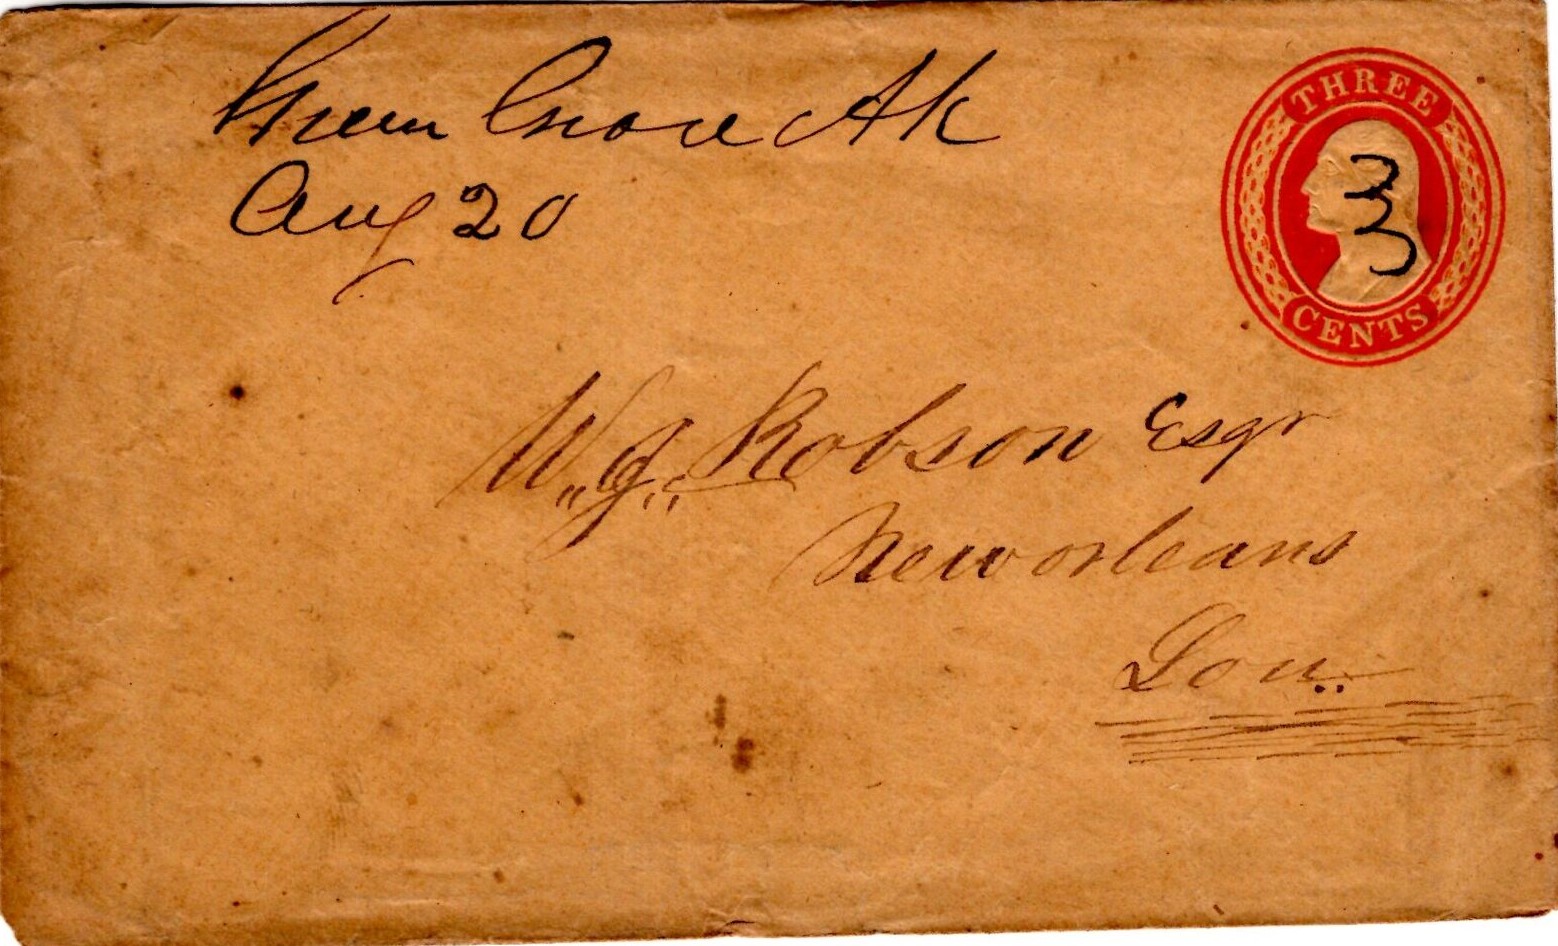 Green Grove Ak
Aug 20
THREE
3
CENTS
W. J. Robson Esqr
New orleans
Lou..